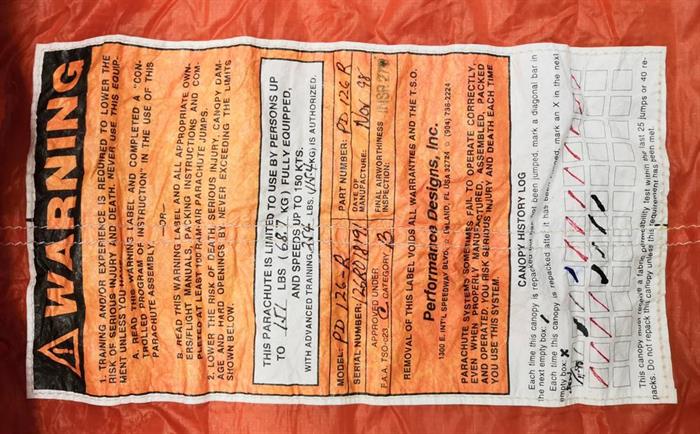 WARNING
1. TRAINING AND/OR EXPERIENCE IS REQUIRED TO LOWER THE
RISK OF SERIOUS INJURY AND DEATH. NEVER USE THIS EQUIP-
MENT UNLESS YOU
A. READ THIS WARNING LABEL AND COMPLETED A "CON-
TROLLED PROGRAM OF INSTRUCTION" IN THE USE OF THIS
PARACHUTE ASSEMBLY.
—OR—
B. READ THIS WARNING LABEL AND ALL APPROPRIATE OWN-
ERS/FLIGHT MANUALS, PACKING INSTRUCTIONS AND COM-
PLETED AT LEAST 100 RAM-AIR PARACHUTE JUMPS.
2. LOWER THE RISK OF DEATH, SERIOUS INJURY, CANOPY DAM-
AGE AND HARD OPENINGS BY NEVER EXCEEDING THE LIMITS
SHOWN BELOW.
THIS PARACHUTE IS LIMITED TO USE BY PERSONS UP
TO LBS ( KG) FULLY EQUIPPED,
AND SPEEDS UP TO 150 KTS.
WITH ADVANCED TRAINING, LBS. ( KG) IS AUTHORIZED.
MODEL: PD 126-R PART NUMBER: PD 126 R
SERIAL NUMBER: DATE OF MANUFACTURE: Nov 98
APPROVED UNDER F.A.A. TSO-C23 CATEGORY B FINAL AIRWORTHINESS INSPECTION
REMOVAL OF THIS LABEL VOIDS ALL WARRANTIES AND THE T.S.O.
Performance Designs, Inc.
1300 E. INT'L SPEEDWAY BLVD. DELAND, FL USA 32724 (904) 738-2224
PARACHUTE SYSTEMS SOMETIMES FAIL TO OPERATE CORRECTLY,
EVEN WHEN PROPERLY MANUFACTURED, ASSEMBLED, PACKED
AND OPERATED. YOU RISK SERIOUS INJURY AND DEATH EACH TIME
YOU USE THIS SYSTEM.
CANOPY HISTORY LOG
Each time this canopy is repacked but has not been jumped, mark a diagonal bar in
the next empty box: /
Each time this canopy is repacked after it has been jumped, mark an X in the next
empty box X
This canopy must receive a fabric permeability test within the last 25 jumps or 40 re-
packs. Do not repack this canopy unless this requirement has been met.